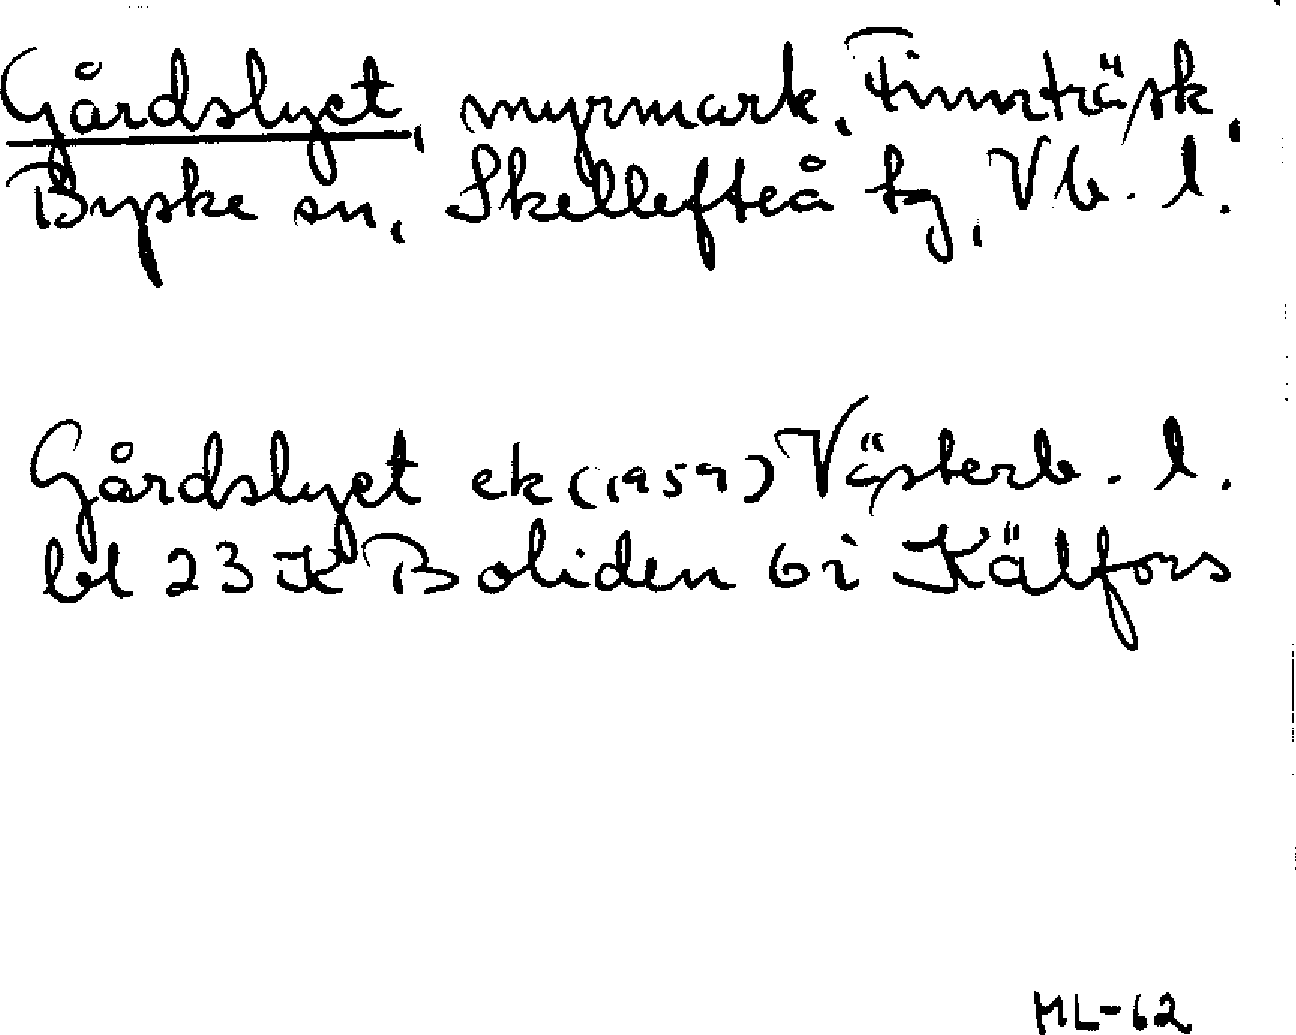 Gårdslyet, myrmark, Finnträsk,
Byske sn, Skellefteå tg, Vb. l.
Gårdslyet ek (1959) Västerb. l.
bl 23 K Boliden 6i Kälfors
ML-62